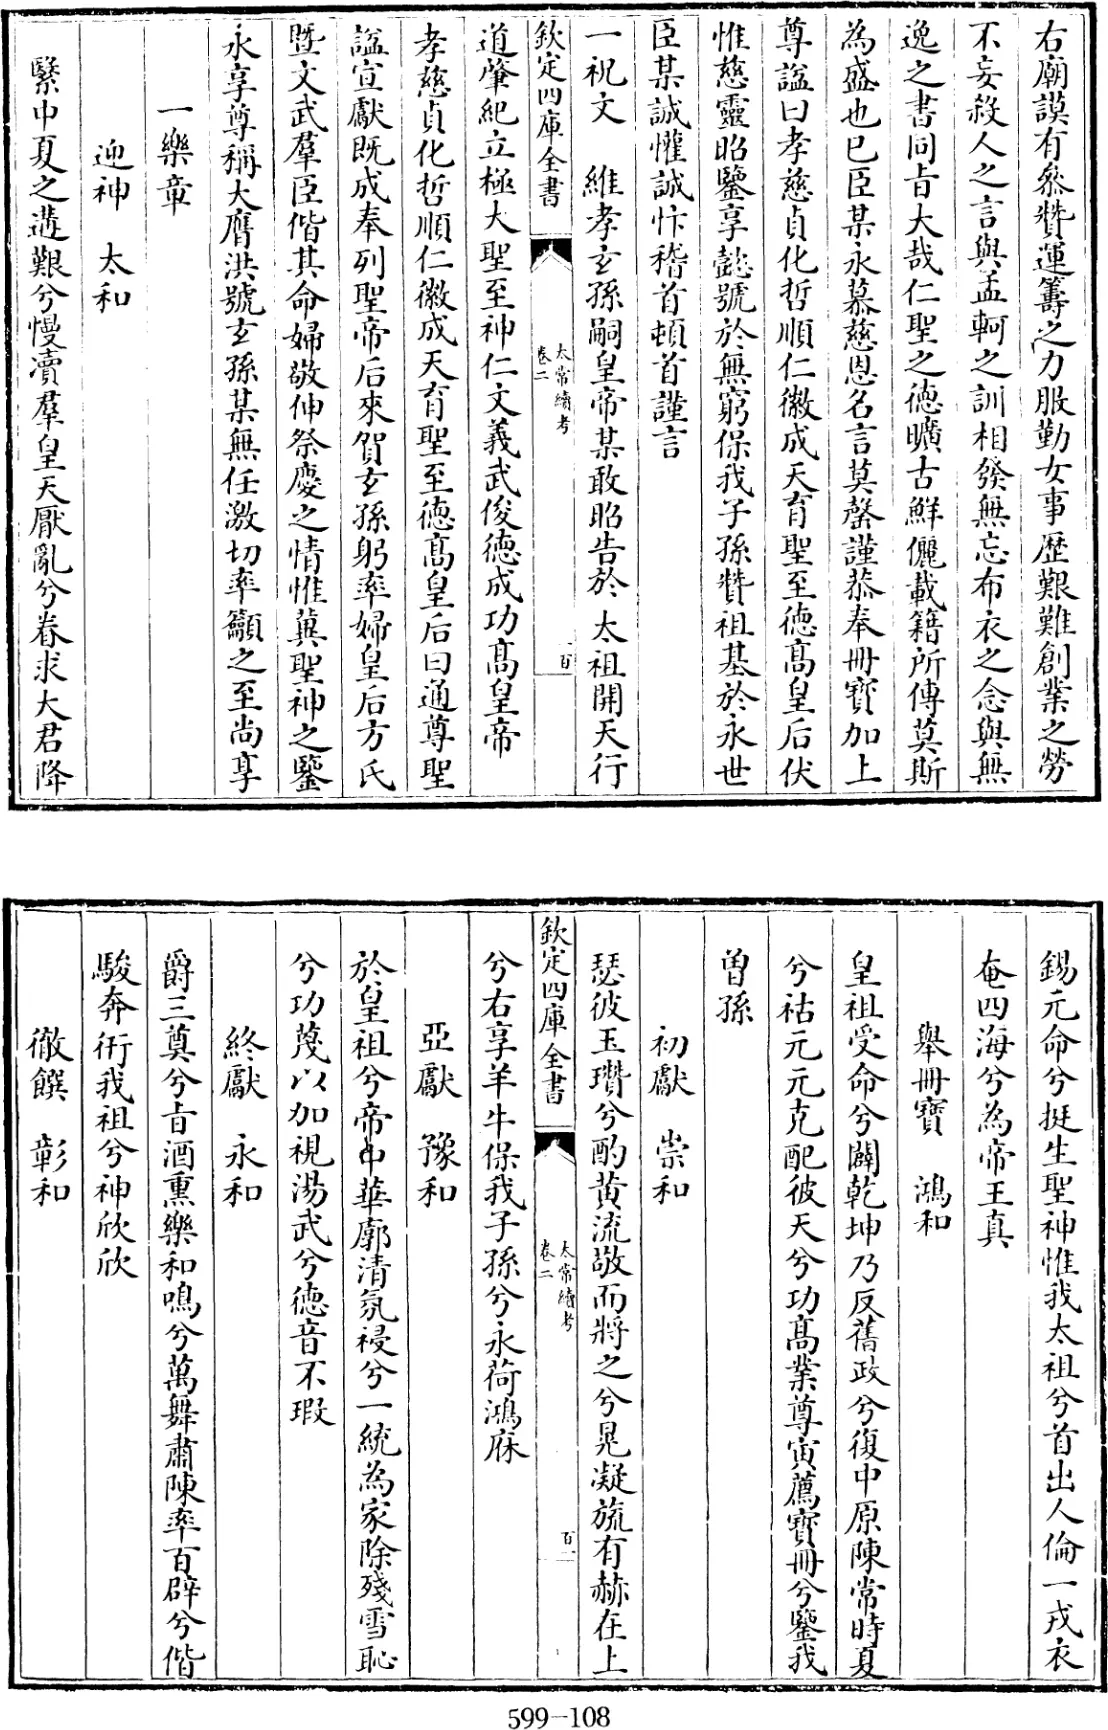 右廟謨有叅贊運籌之力服勤女事歴艱難創業之勞
不妄殺人之言與孟軻之訓相發無忘布衣之念與無
逸之書同㫖大哉仁聖之徳曠古鮮儷載籍所傳莫斯
為盛也已臣某永慕慈恩名言莫罄謹恭奉冊寳加上
尊諡曰孝慈貞化哲順仁徽成天育聖至徳髙皇后伏
惟慈靈昭鑒享懿號於無窮保我子孫贊祖基於永世
臣某誠懽誠忭稽首頓首謹言
一祝文　維孝玄孫嗣皇帝某敢昭告於太祖開天行
欽定四庫全書
太常續考
卷二
百
道肇紀立極大聖至神仁文義武俊徳成功髙皇帝
孝慈貞化哲順仁徽成天育聖至徳髙皇后曰通尊聖
諡宣獻既成奉列聖帝后來賀玄孫躬率婦皇后方氏
暨文武羣臣偕其命婦敬伸祭慶之情惟冀聖神之鑒
永享尊稱大膺洪號玄孫某無任激切率籲之至尚享
一樂章
迎神　太和
緊中夏之遘艱兮慢瀆羣皇天厭亂兮眷求大君降
錫元命兮挺生聖神惟我太祖兮首出人倫一戎衣
奄四海兮為帝王真
舉冊寳　鴻和
皇祖受命兮闢乾坤乃反舊政兮復中原陳常時夏
兮祜元元克配彼天兮功髙業尊寅薦寳冊兮鑒我
曽孫
初獻　崇和
瑟彼玉瓚兮酌黄流敬而將之兮晃凝旒有赫在上
欽定四庫全書
太常續考
卷二
百一
兮右享羊牛保我子孫兮永荷鴻庥
亞獻　豫和
於皇祖兮帝中華廓清氛祲兮一統為家除殘雪恥
兮功茂以加視湯武兮徳音不瑕
終獻　永和
爵三奠兮㫖酒熏樂和鳴兮萬舞肅陳率百辟兮偕
駿奔衎我祖兮神欣欣
徹饌　彰和
599-108